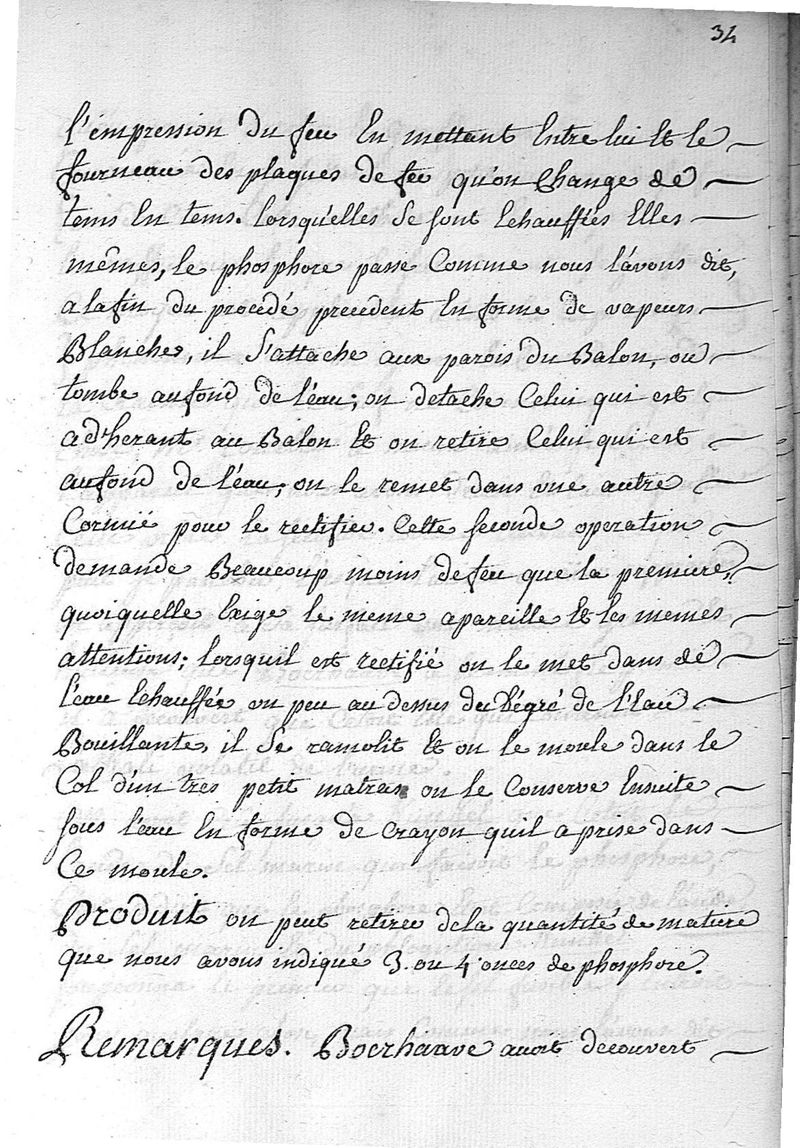 34
l'émpression du feu En mettant Entre lui Et le
fourneau des plaques de fer qu'on Change de
tems En tems. lorsqu'elles Se sont Echauffées Elles
mêmes, le phosphore passe Comme nous l'avons dit,
a la fin du procédé precedent En forme de vapeurs
Blanches, il S'attache aux parois du Balon, ou
tombe au fond de l'eau; on detache Celui qui est
ad'herant au Balon Et on retire Celui qui est
au fond de l'eau, on le remet dans une autre
Cornuë pour le rectifier. Cette seconde operation
demande Beaucoup moins de feu que la premiere,
quoiquelle Exige le meme apareille Et les memes
attentions; lorsquil est rectifié on le met dans de
l'eau Echauffée un peu au dessus du dégré de l'Eau
Bouillante, il Se ramolit Et on le moule dans le
Col d'un tres petit matras on le Conserve Ensuite
sous l'eau En forme de Crayon quil a prise dans
Ce moule.
Produit on peut retirer de la quantité de matiere
que nous avons indiqué 3. ou 4 onces de phosphore.
Remarques. Boerhaave avoit decouvert